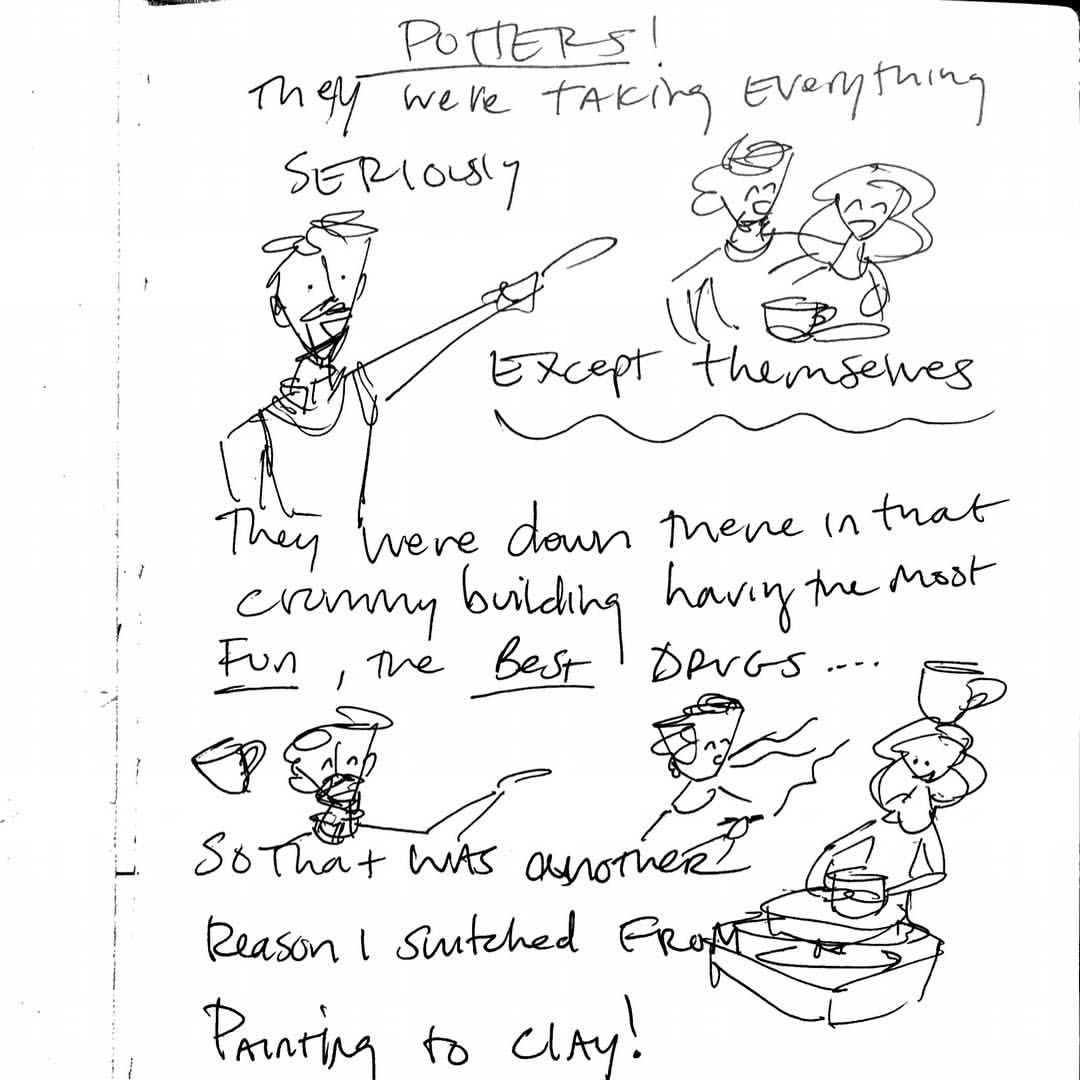 POTTERS!
They were TAKing EVErything
SERIOUSly
Except themselves
They were down there in that
crummy building having the Most
Fun, the Best DRUGS ....
So That WAS another
Reason I switched FROM
PAinting to ClAy!